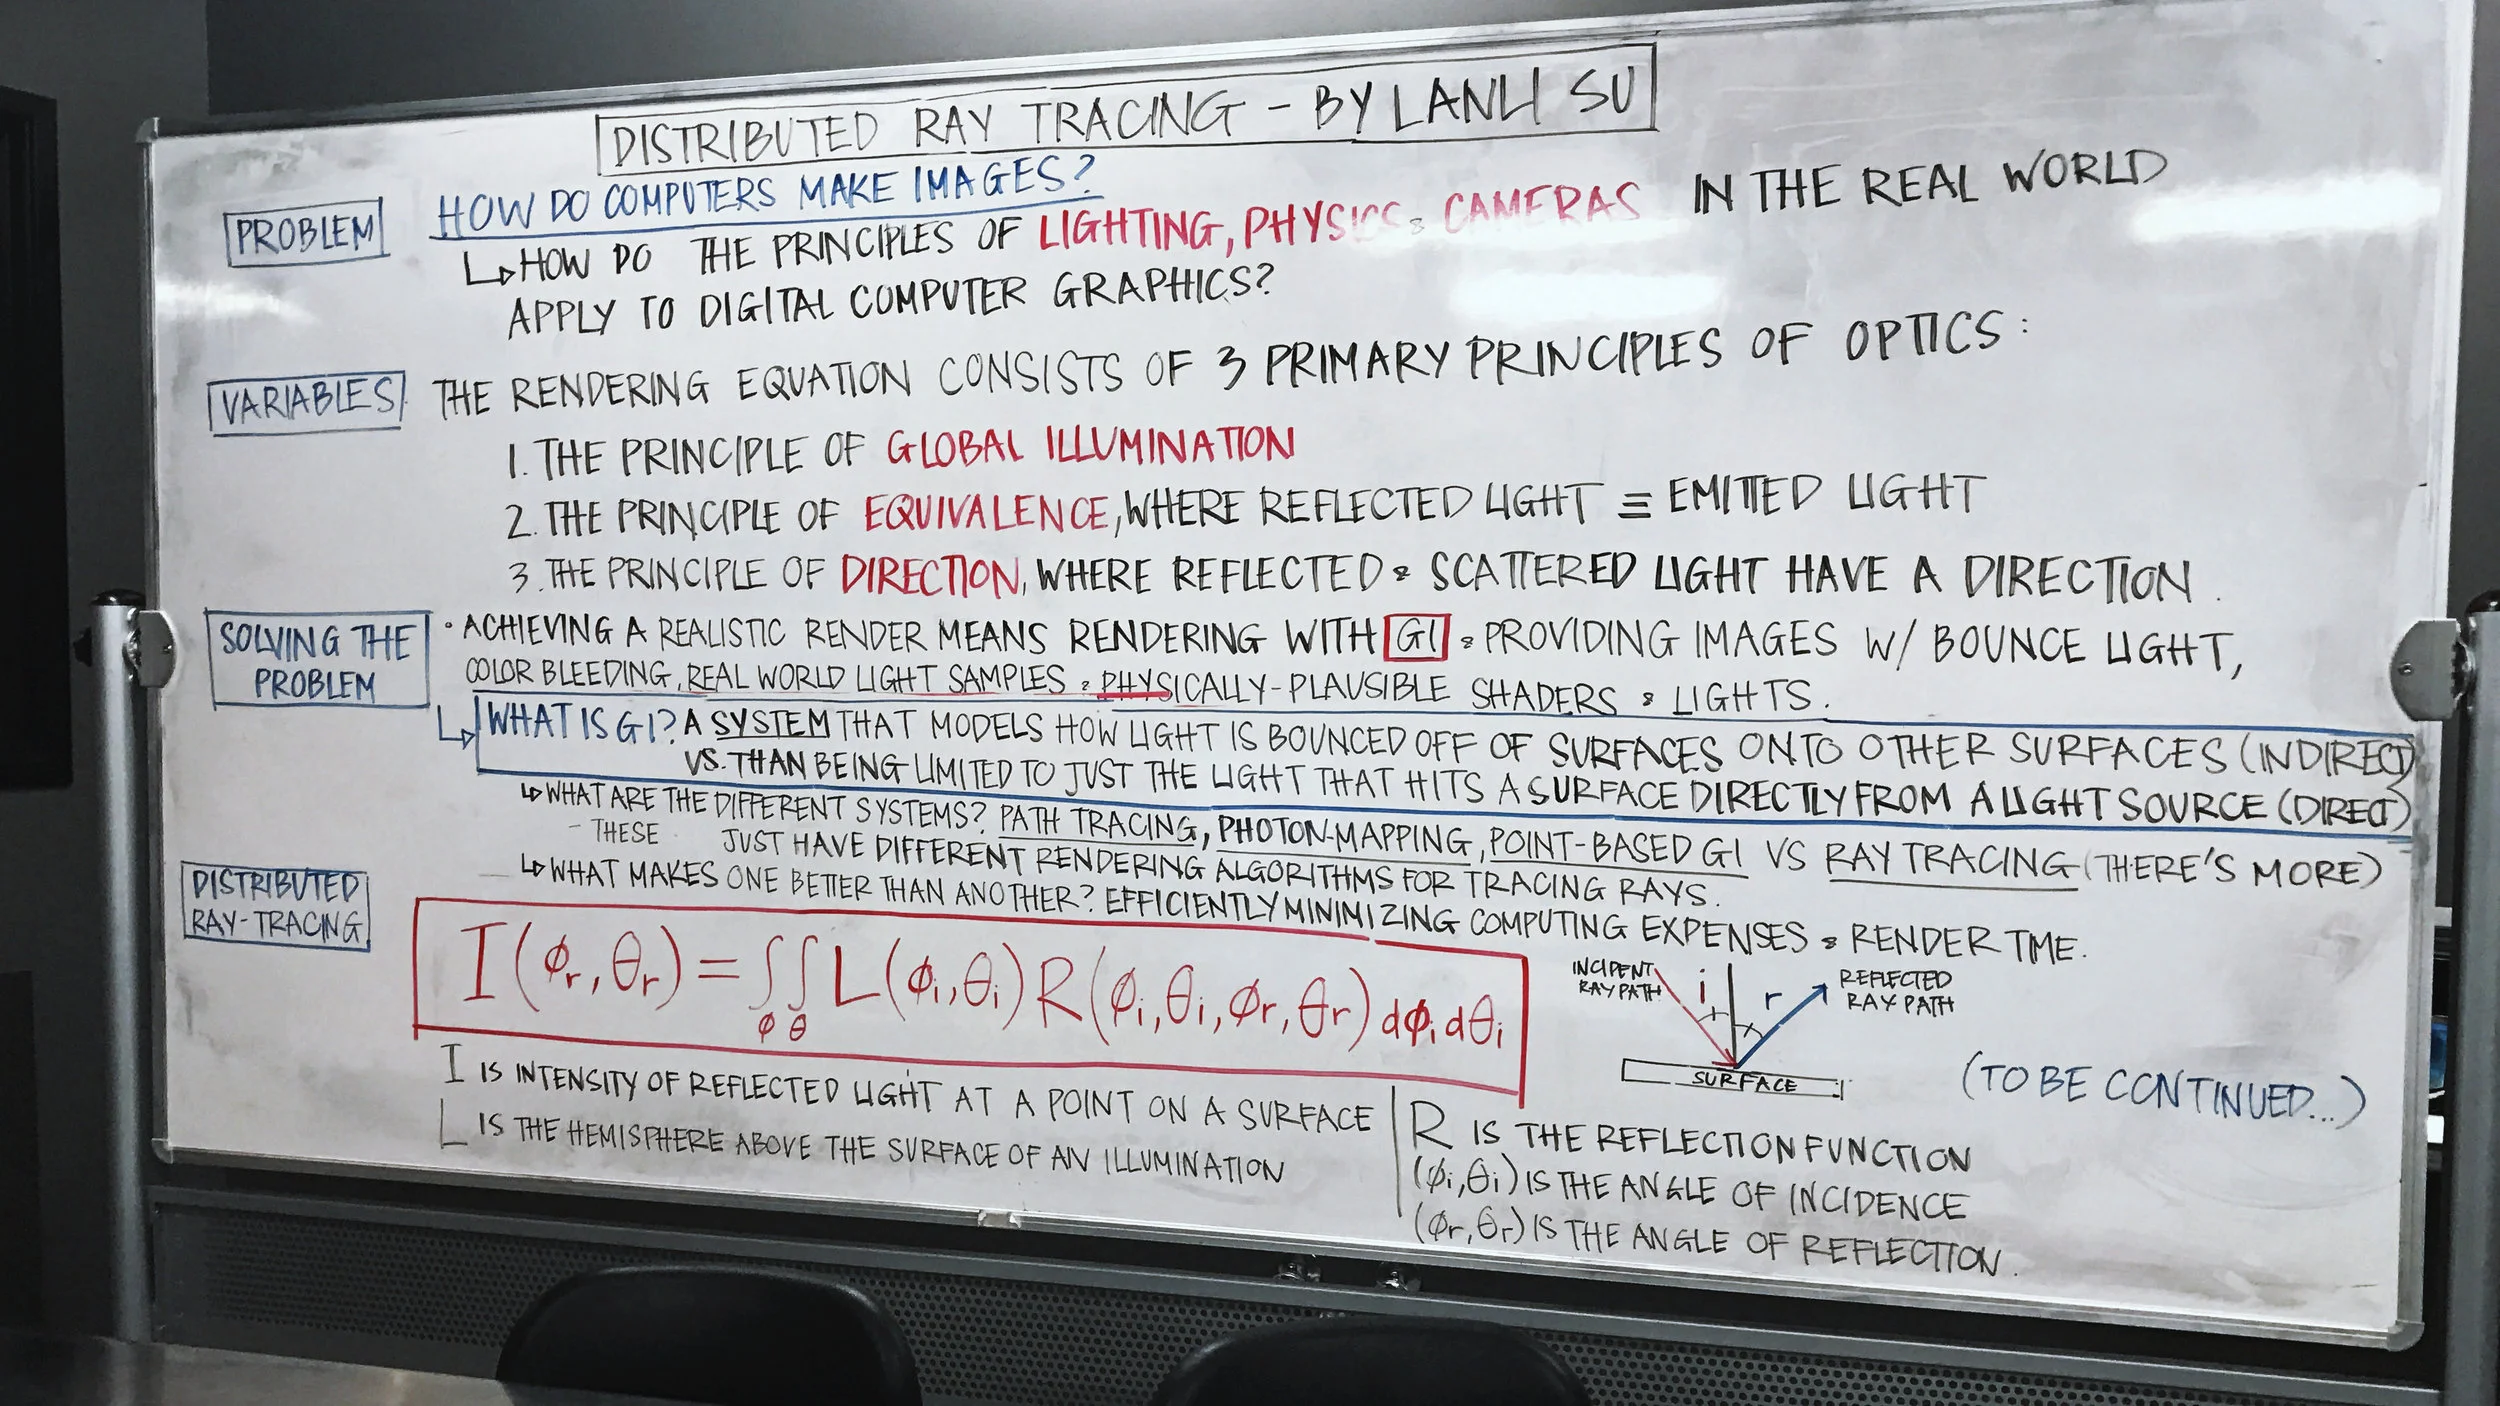 DISTRIBUTED RAY TRACING - BY LANLI SU
PROBLEM
HOW DO COMPUTERS MAKE IMAGES?
↳HOW DO THE PRINCIPLES OF LIGHTING, PHYSICS & CAMERAS IN THE REAL WORLD
APPLY TO DIGITAL COMPUTER GRAPHICS?
VARIABLES
THE RENDERING EQUATION CONSISTS OF 3 PRIMARY PRINCIPLES OF OPTICS:
1. THE PRINCIPLE OF GLOBAL ILLUMINATION
2. THE PRINCIPLE OF EQUIVALENCE, WHERE REFLECTED LIGHT ≡ EMITTED LIGHT
3. THE PRINCIPLE OF DIRECTION, WHERE REFLECTED & SCATTERED LIGHT HAVE A DIRECTION.
SOLVING THE
PROBLEM
• ACHIEVING A REALISTIC RENDER MEANS RENDERING WITH GI & PROVIDING IMAGES W/ BOUNCE LIGHT,
COLOR BLEEDING, REAL WORLD LIGHT SAMPLES & PHYSICALLY-PLAUSIBLE SHADERS & LIGHTS.
↳ WHAT IS GI? A SYSTEM THAT MODELS HOW LIGHT IS BOUNCED OFF OF SURFACES ONTO OTHER SURFACES (INDIRECT)
VS. THAN BEING LIMITED TO JUST THE LIGHT THAT HITS A SURFACE DIRECTLY FROM A LIGHT SOURCE (DIRECT)
↳ WHAT ARE THE DIFFERENT SYSTEMS? PATH TRACING, PHOTON-MAPPING, POINT-BASED GI VS RAY TRACING (THERE'S MORE)
- THESE JUST HAVE DIFFERENT RENDERING ALGORITHMS FOR TRACING RAYS.
↳ WHAT MAKES ONE BETTER THAN ANOTHER? EFFICIENTLY MINIMIZING COMPUTING EXPENSES & RENDER TIME.
DISTRIBUTED
RAY-TRACING
I(ϕr, θr) = ∫ϕ∫θ L(ϕi, θi) R(ϕi, θi, ϕr, θr) dϕi dθi
INCIDENT
RAY PATH
i
r
REFLECTED
RAY PATH
SURFACE
(TO BE CONTINUED...)
I IS INTENSITY OF REFLECTED LIGHT AT A POINT ON A SURFACE
L IS THE HEMISPHERE ABOVE THE SURFACE OF AN ILLUMINATION
R IS THE REFLECTION FUNCTION
(ϕi, θi) IS THE ANGLE OF INCIDENCE
(ϕr, θr) IS THE ANGLE OF REFLECTION.